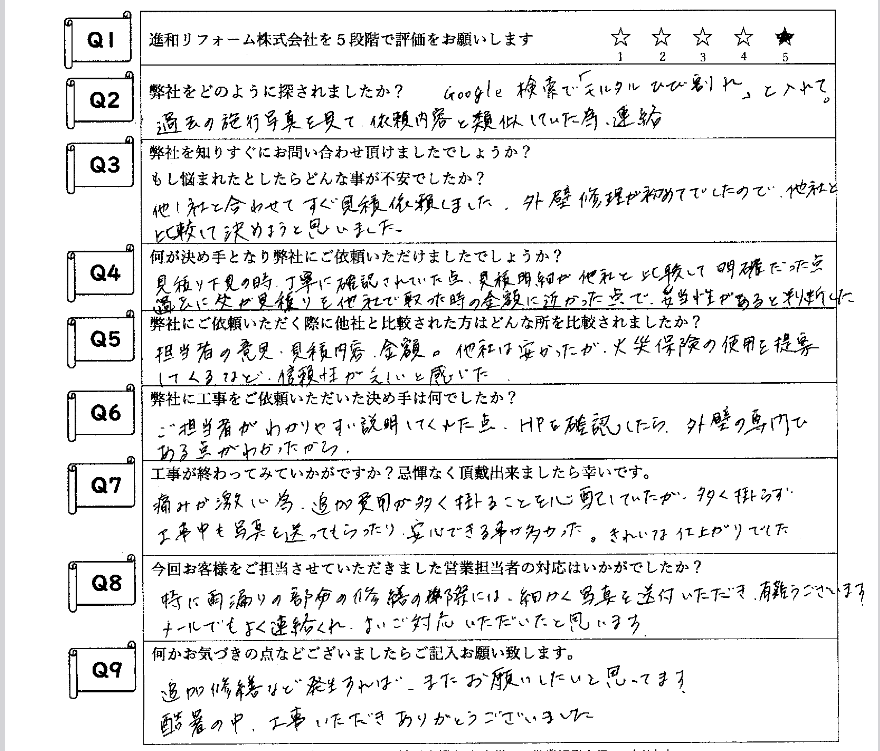 Q1 進和リフォーム株式会社を5段階で評価をお願いします ☆ ☆ ☆ ☆ ★
1 2 3 4 5
Q2 弊社をどのように探されましたか? Google 検索で「モルタル ひび割れ」と入れて。
過去の施行写真を見て 依頼内容と類似していた為、連絡
Q3 弊社を知りすぐにお問い合わせ頂けましたでしょうか?
もし悩まれたとしたらどんな事が不安でしたか?
他1社と合わせてすぐ見積依頼しました。外壁修理が初めてでしたので、他社と
比較して決めようと思いました。
Q4 何が決め手となり弊社にご依頼いただけましたでしょうか?
見積り下見の時、丁寧に確認されていた点、見積明細が他社と比較して明確だった点
過去に 見積りを他社で取った時の金額に近かった点で、妥当性があると判断した
Q5 弊社にご依頼いただく際に他社と比較された方はどんな所を比較されましたか?
担当者の意見・見積内容・金額。他社は安かったが、火災保険の使用を提案
してくるなど、信頼性が乏しいと感じた。
Q6 弊社に工事をご依頼いただいた決め手は何でしたか?
ご担当者がわかりやすい説明してくれた点、HPを確認したら、外壁の専門で
ある点がわかったから。
Q7 工事が終わってみていかがですか?忌憚なく頂戴出来ましたら幸いです。
痛みが激しい為、追加費用が多く掛ることを心配していたが、多く掛らず
工事中も写真を送ってもらったり、安心できる事が多かった。きれいな仕上がりでした
Q8 今回お客様をご担当させていただきました営業担当者の対応はいかがでしたか?
特に雨漏りの部分の修繕の際には、細かく写真を送付いただき、有難うございます
メールでもよく連絡くれ、よいご対応いただいたと思います。
Q9 何かお気づきの点などございましたらご記入お願い致します。
追加修繕など発生すれば、またお願いしたいと思ってます。
酷暑の中、工事いただきありがとうございました